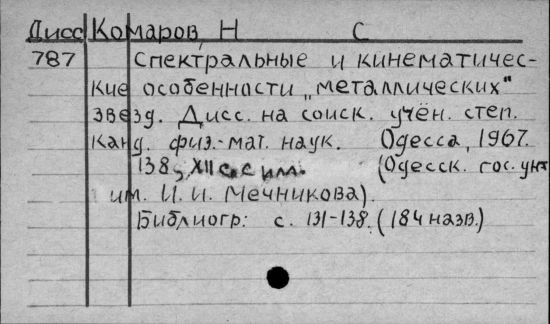 Дисс Комаров, Н С
787 Спектральные и кинематичес-
кие особенности „металлических"
звезд. Дисс. на соиск. учён. степ.
канд. физ.-мат. наук. Одесса, 1967.
138, XII с. с илл. (Одесск. гос. унт
им. И. И. Мечникова).
Библиогр: с. 131-138. (184 назв.)